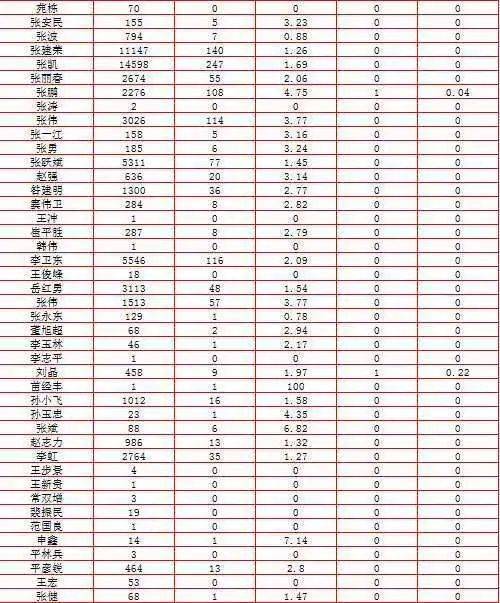 宛栋 70 0 0 0 0
张安民 155 5 3.23 0 0
张波 794 7 0.88 0 0
张建荣 11147 140 1.26 0 0
张凯 14598 247 1.69 0 0
张丽春 2674 55 2.06 0 0
张鹏 2276 108 4.75 1 0.04
张涛 2 0 0 0 0
张伟 3026 114 3.77 0 0
张一江 158 5 3.16 0 0
张勇 185 6 3.24 0 0
张跃斌 5311 77 1.45 0 0
赵强 636 20 3.14 0 0
昝建明 1300 36 2.77 0 0
窦伟卫 284 8 2.82 0 0
王冲 1 0 0 0 0
崔平胜 287 8 2.79 0 0
韩伟 1 0 0 0 0
李卫东 5546 116 2.09 0 0
王俊峰 18 0 0 0 0
岳红勇 3113 48 1.54 0 0
张伟 1513 57 3.77 0 0
张永东 129 1 0.78 0 0
董旭超 68 2 2.94 0 0
李玉林 46 1 2.17 0 0
李志平 1 0 0 0 0
刘晶 458 9 1.97 1 0.22
苗经丰 1 1 100 0 0
孙小飞 1012 16 1.58 0 0
孙玉忠 23 1 4.35 0 0
张斌 88 6 6.82 0 0
赵志力 986 13 1.32 0 0
李虹 2764 35 1.27 0 0
王步景 4 0 0 0 0
王新贵 1 0 0 0 0
常双增 3 0 0 0 0
裴振民 19 0 0 0 0
范国良 1 0 0 0 0
申鑫 14 1 7.14 0 0
平林兵 3 0 0 0 0
平彦锐 464 13 2.8 0 0
王宏 53 0 0 0 0
张健 68 1 1.47 0 0